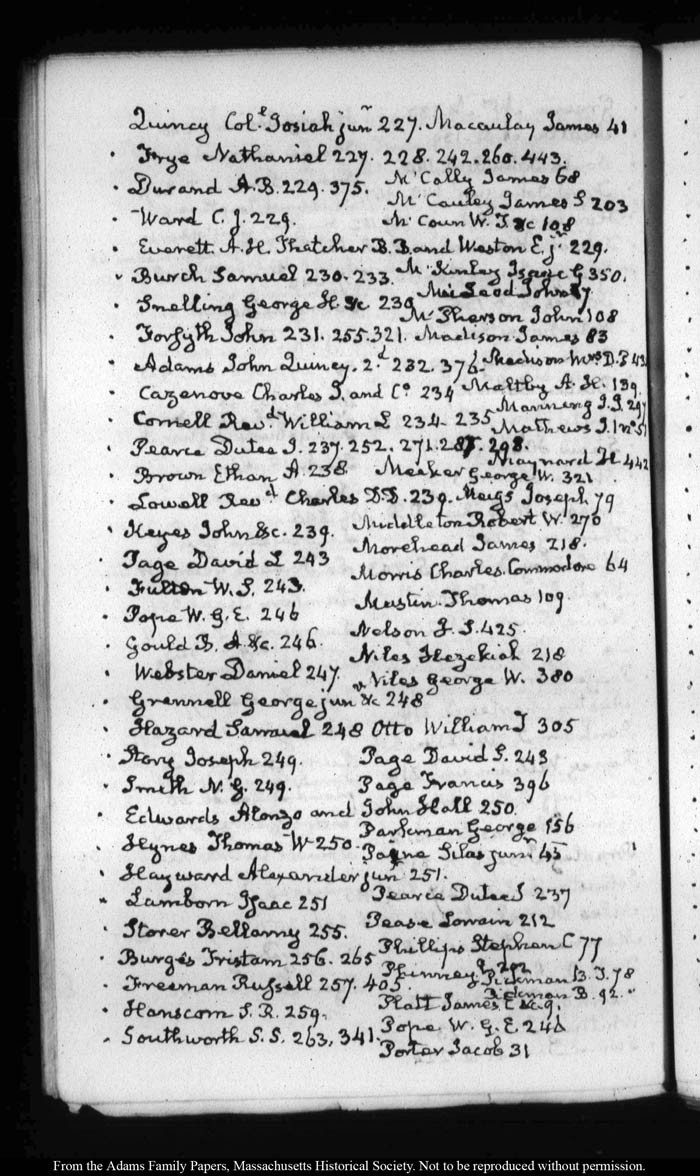 Quincy Col.l Josiah junr 227. Macaulay James 41
Frye Nathaniel 227. 228. 242. 260. 443.
Durand A. B. 229. 375. McCally James 68
McCauley James S 203
Ward C. J. 229. McCoun W. T. &c 108
Everett. A. H. Thatcher B. B. and Weston E. jr 229.
Burch Samuel 230. 233. McKinley Isaac G 350.
Snelling George H. &c 230 McLeod John
McPherson John 108
Forsyth John 231. 255. 321. Madison James 83
Adams John Quincy. 2.d 232. 376. Madison Mrs D. P
Cazenove Charles I. and Co 234 Maltby A. H. 139.
Manning J. J.
Cornell Revd. William L 234. 235 Mathews J.
Pearce Dutee J. 237. 252. 271. 298.
Maynard H 442
Brown Ethan A. 238 Meeker George W. 321
Lowell Revd Charles D.D. 239. Meigs Joseph 79
Keyes John &c. 239. Middleton Robert W. 270
Page David L 243 Morehead James 218.
Fulton W. S. 243. Morris Charles. Commodore 64
Pope W. G. E. 246 Mustin. Thomas 109.
Gould B. A &c. 246. Nelson J. S. 425.
Niles Hezekiah 218
Webster Daniel 247. Niles George W. 380
Grennell George jun &c 248
Hazard Samuel 248 Otto William T 305
Story Joseph 249. Page David S. 243
Smith N. G. 249. Page Francis 396
Edwards Alonzo and John Hall 250.
Parkman George 156
Hynes Thomas W 250. Payne Silas junr 45
Hayward Alexander junr 251.
Lamborn Isaac 251 Pearce Dutee J 237
Storer Bellamy 255. Pease Lorrain 212
Burges Tristam 256. 265 Phillips Stephen C 77
Phinney
Freeman Russell 257. 405. Pickman B. T. 78
Pickman B. 92.
Hanscom S. R. 259. Platt James C &c. 9.
Southworth S. S. 263, 341. Pope W. G. E. 246
Porter Jacob 31
From the Adams Family Papers, Massachusetts Historical Society. Not to be reproduced without permission.